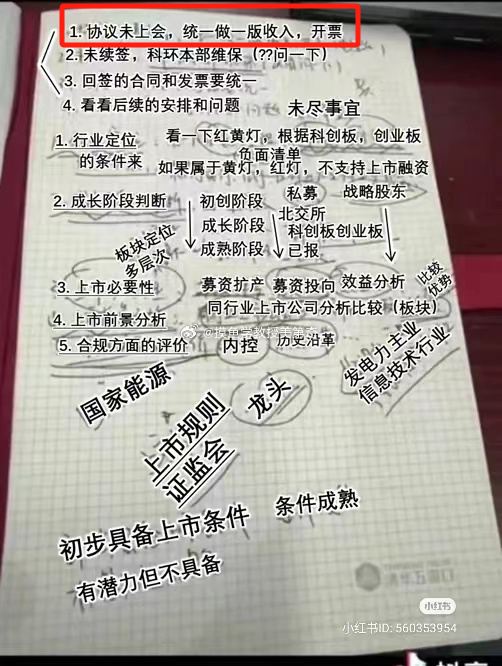 1. 协议未上会，统一做一版收入，开票
2. 未续签，科环本部维保（??问一下）
3. 回签的合同和发票要统一
4. 看看后续的安排和问题
未尽事宜
1. 行业定位的条件来
看一下红黄灯，根据科创板，创业板
负面清单
如果属于黄灯，红灯，不支持上市融资
2. 成长阶段判断
初创阶段
私募
战略股东
成长阶段
北交所
科创板创业板
成熟阶段
已报
板块定位
多层次
3. 上市必要性
募资扩产
募资投向
效益分析
比较优势
同行业上市公司分析比较（板块）
4. 上市前景分析
@摸鱼学教授美第奇
5. 合规方面的评价
内控
历史沿革
发电力主业
信息技术行业
国家能源
龙头
上市规则
证监会
初步具备上市条件
条件成熟
有潜力但不具备
清华五道口
小红书
小红书ID: 560353954